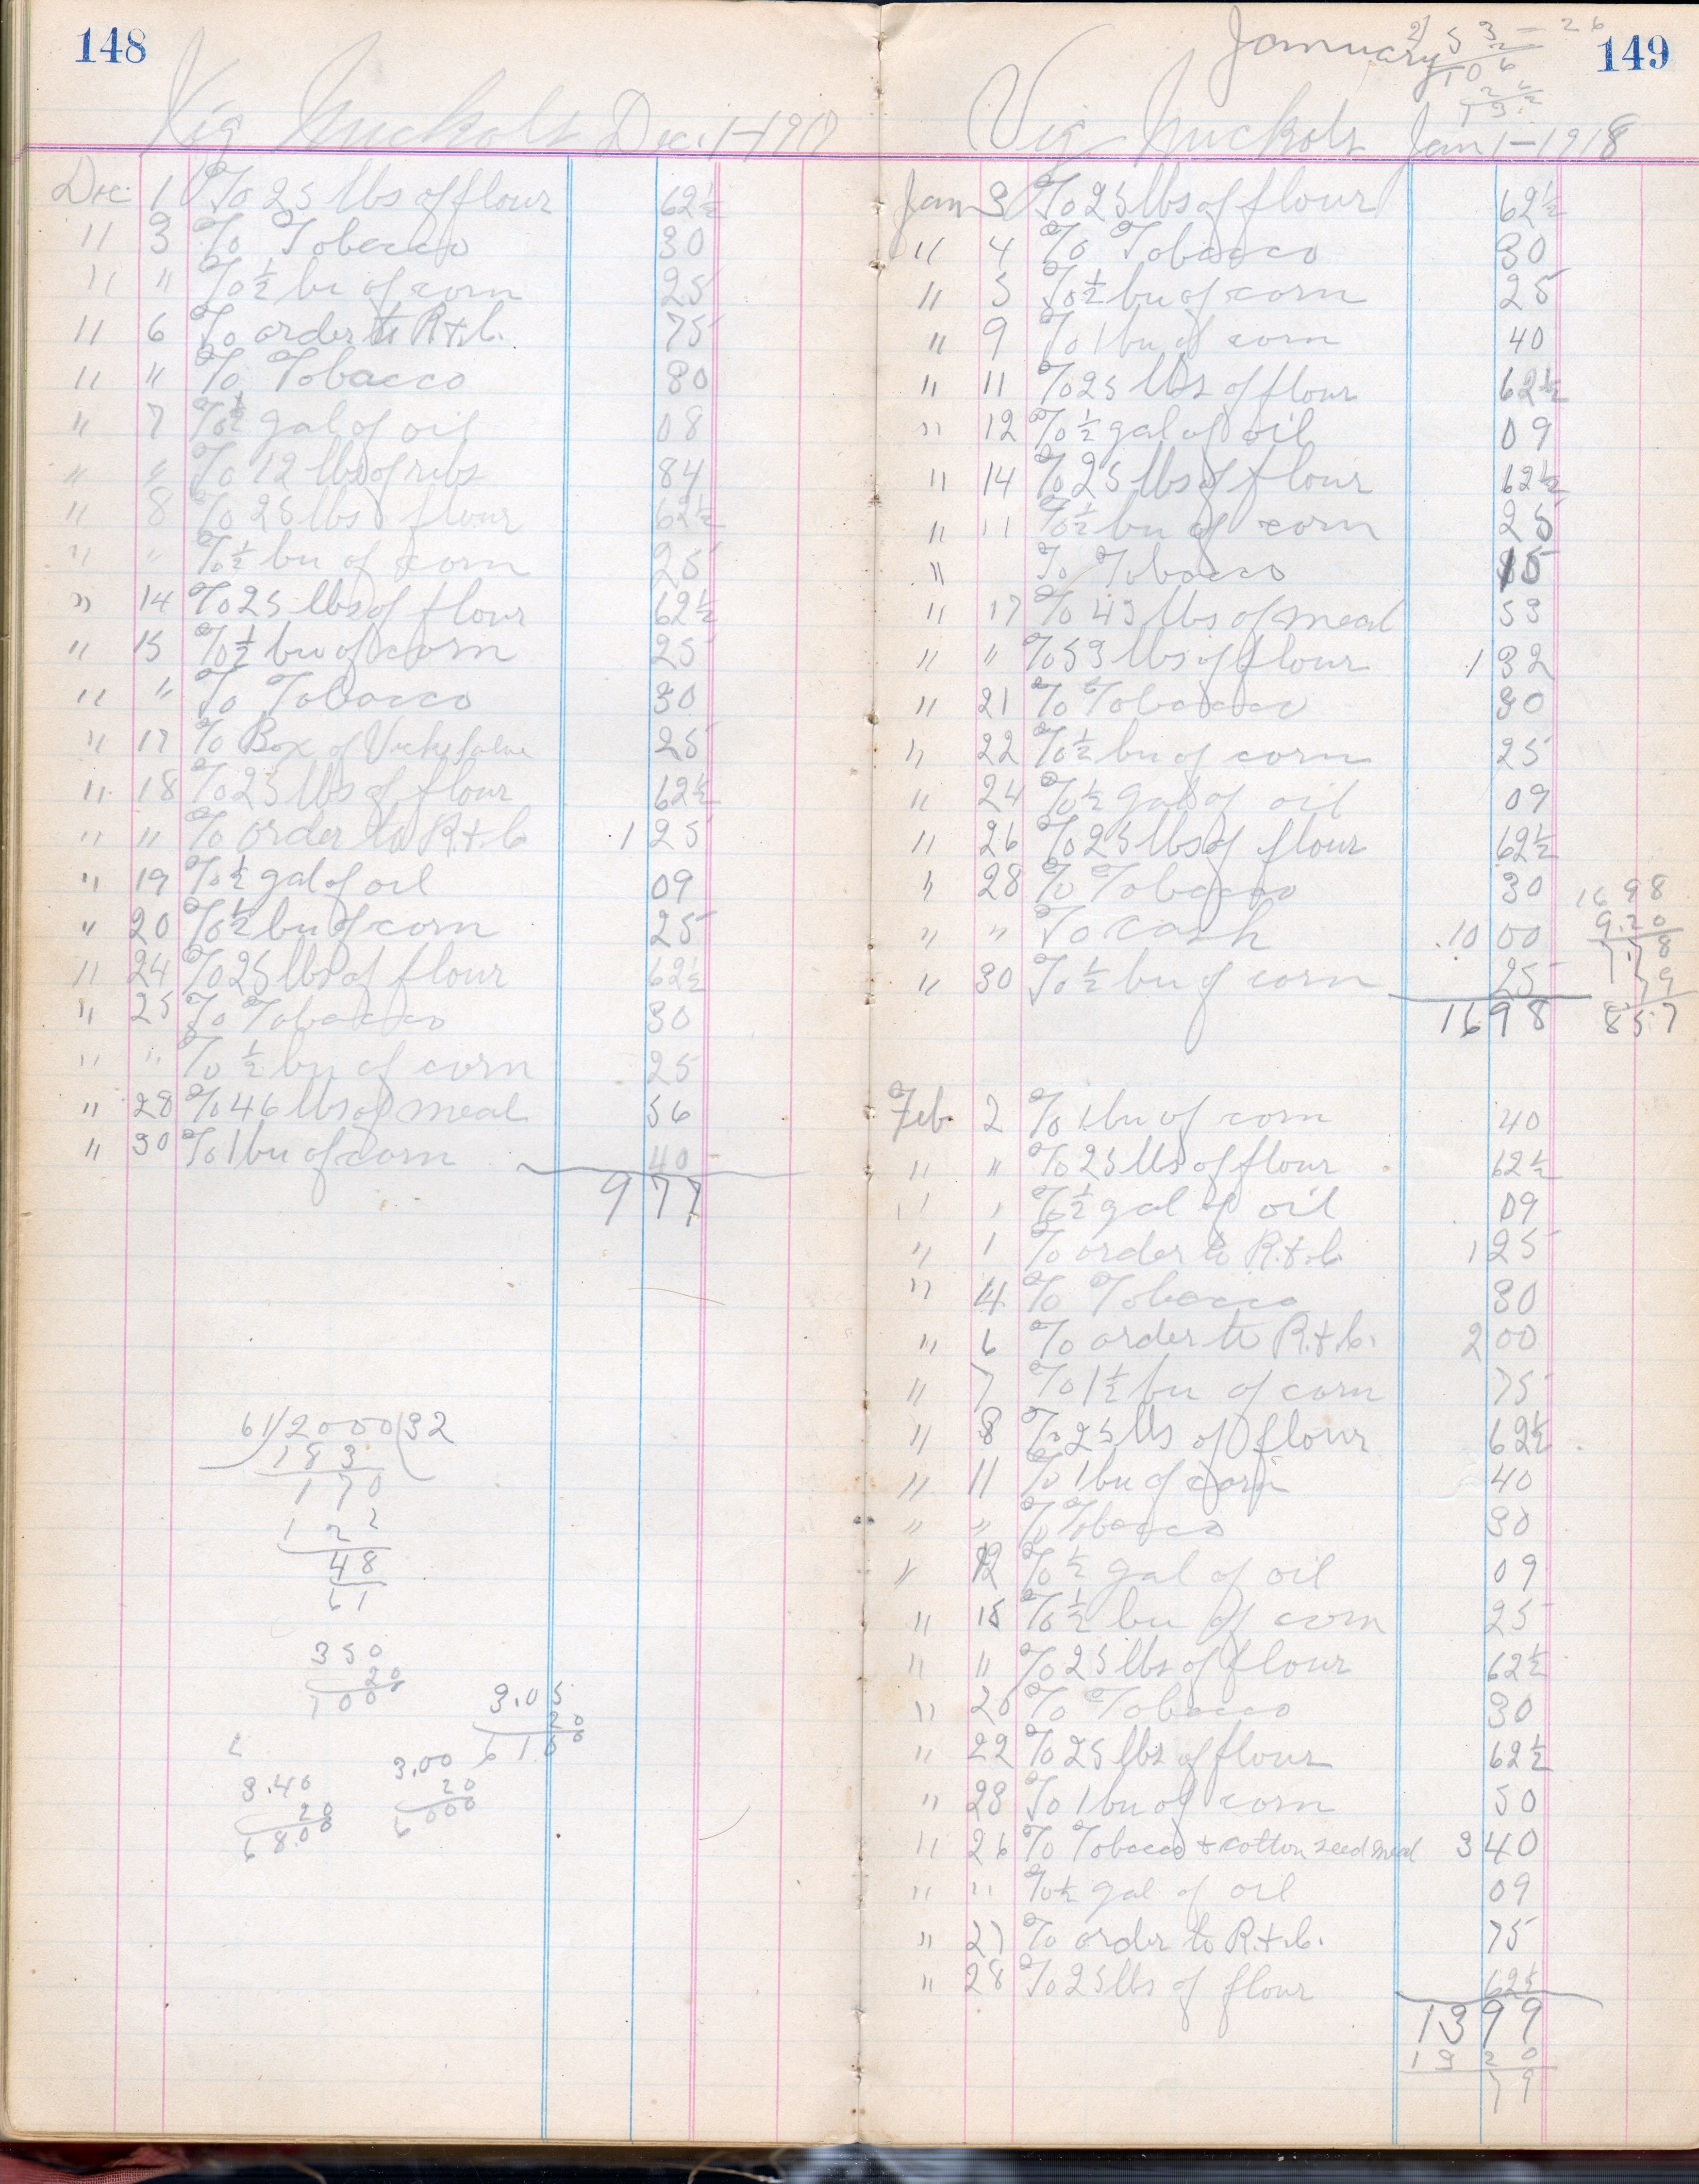 148
Vig Nuckols Dec. 1-1917
Dec. 1 To 25 lbs of flour 62½
" 3 To Tobacco 30
" " To ½ bu of corn 25
" 6 To order to R.+b. 75
" " To Tobacco 30
" 7 To ½ gal of oil 08
" " To 12 lbs of ribs 84
" 8 To 25 lbs flour 62½
" " To ½ bu of corn 25
" 14 To 25 lbs of flour 62½
" 15 To ½ bu of corn 25
" " To Tobacco 30
" 17 To Box of Vicks Salve 25
" 18 To 25 lbs of flour 62½
" " To order to R+b 1 25
" 19 To ½ gal of oil 09
" 20 To ½ bu of corn 25
" 24 To 25 lbs of flour 62½
" 25 To Tobacco 30
" " To ½ bu of corn 25
" 28 To 46 lbs of meal 56
" 30 To 1 bu of corn 40
9 77
61/2000(32
183
170
122
48
61
350
20
7000
3.05
20
6100
3.40
20
68.00
3.00
20
6000
January
2) 53 = 26
106
149
Vig Nuckols Jan 1-1918
Jan 3 To 25 lbs of flour 62½
" 4 To Tobacco 30
" 5 To ½ bu of corn 25
" 9 To 1 bu of corn 40
" 11 To 25 lbs of flour 62½
" 12 To ½ gal of oil 09
" 14 To 25 lbs of flour 62½
" 11 To ½ bu of corn 25
" To Tobacco 15
" 17 To 43 lbs of meal 53
" " To 53 lbs of flour 1 32
" 21 To Tobacco 30
" 22 To ½ bu of corn 25
" 24 To ½ gal of oil 09
" 26 To 25 lbs of flour 62½
" 28 To Tobacco 30
" " To cash 10 00
" 30 To ½ bu of corn 25
16 98
16 98
9.20
778
79
857
Feb. 2 To 1 bu of corn 40
" " To 25 lbs of flour 62½
" " To ½ gal of oil 09
" 1 To order to R.+b. 1 25
" 4 To Tobacco 30
" 6 To order to R.+b. 2 00
" 7 To 1½ bu of corn 75
" 8 To 25 lbs of flour 62½
" 11 To 1 bu of corn 40
" " To Tobacco 30
" 12 To ½ gal of oil 09
" 15 To ½ bu of corn 25
" " To 25 lbs of flour 62½
" 20 To Tobacco 30
" 22 To 25 lbs of flour 62½
" 28 To 1 bu of corn 50
" 26 To Tobacco + cotton seed meal 3 40
" " To ½ gal of oil 09
" 27 To order to R.+b. 75
" 28 To 25 lbs of flour 62½
13 99
13 20
79